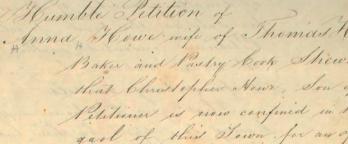 Humble Petition of
Anna Howe wife of Thomas H
Baker and Pastry Cook Shew
that Christopher Howe Son o
Petitioner is now confined in t
gaol of this Town for an o